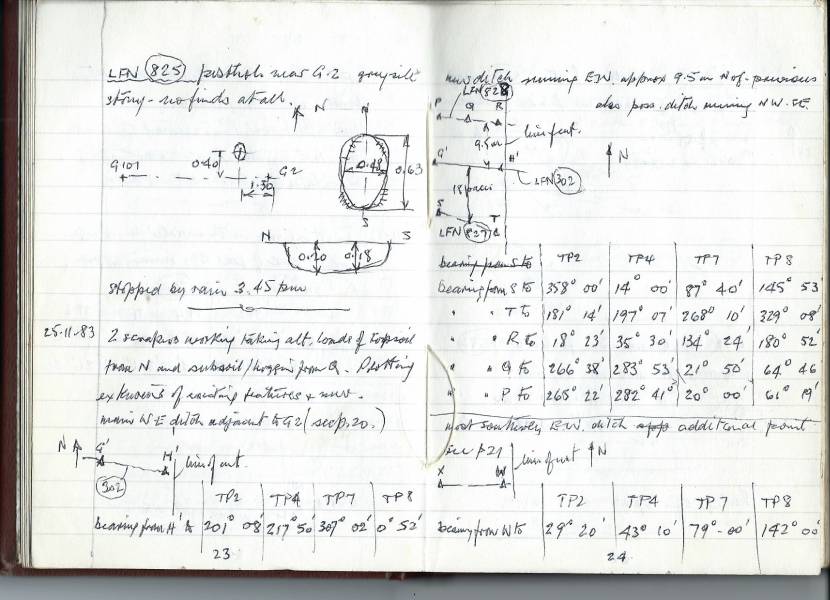 LFN 825 posthole near G.2 grey silt
stony - no finds at all.
N
N
G101
0.40
G2
1.30
0.48
0.63
S
N
S
0.20
0.18
stopped by rain 3.45 pm
25.11.83 2 scrapers working taking alt. loads of topsoil
from N and subsoil/hoggin from Q. Plotting
extensions of existing features & new.
main W-E ditch adjacent to G2 (see p.20.)
N
G'
H'
line of cut.
302
TP2 TP4 TP7 TP8
bearing from H' to 201° 08' 217° 50' 307° 02' 0° 52'
23
new ditch running EW. approx 9.5m N of previous
also poss. ditch running NW-SE.
LFN 828
P
Q
R
line of cut.
9.5m
G'
H'
N
LFN 302
18 paces
S
T
LFN 827
bearing from S to TP2 TP4 TP7 TP8
bearing from S to 358° 00' 14° 00' 87° 40' 145° 53'
" " T to 181° 14' 197° 07' 268° 10' 329° 08'
" " R to 18° 23' 35° 30' 134° 24' 180° 52'
" " Q to 266° 38' 283° 53' 21° 50' 64° 46
" " P to 265° 22' 282° 41' 20° 00' 61° 19'
most southerly EW. ditch app additional point
see p21
X
W
line of cut
N
TP2 TP4 TP7 TP8
bearing from W to 29° 20' 43° 10' 79°-00' 142° 00'
24